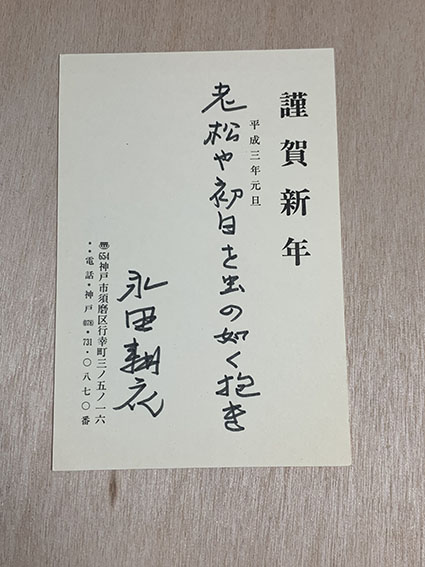 謹賀新年
平成三年元旦
老松や初日を虫の如く抱き
永田耕衣
〒654神戸市須磨区行幸町三ノ五ノ一六
電話・神戸(078)・731・〇八七〇番